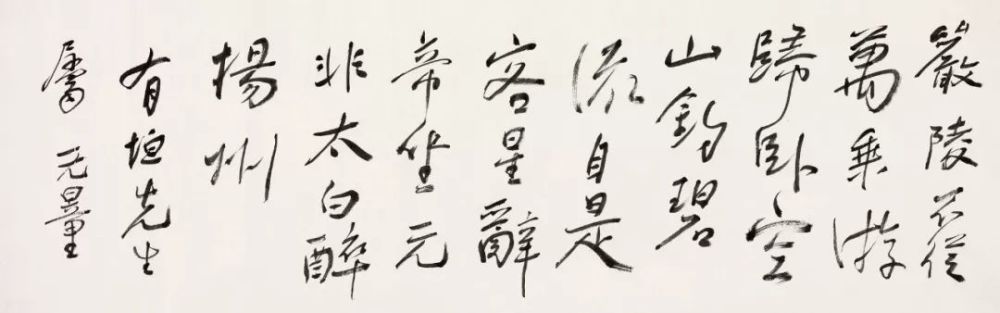 嚴陵不從
萬乘游
歸臥空
山釣碧
流自是
客星辭
帝坐元
非太白醉
揚州
有垣先生
屬 无量